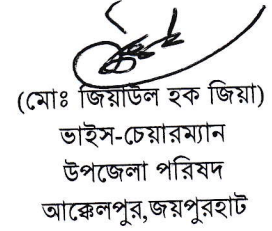 (মোঃ জিয়াউল হক জিয়া)
ভাইস-চেয়ারম্যান
উপজেলা পরিষদ
আক্কেলপুর,জয়পুরহাট